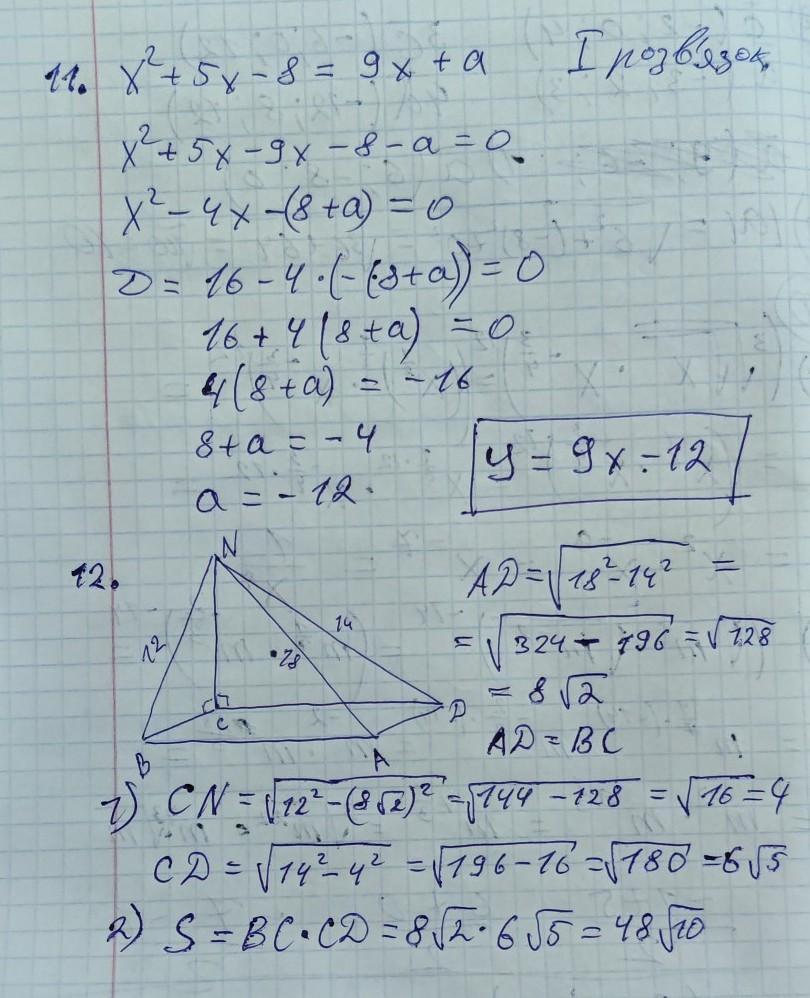 11. x² + 5x - 8 = 9x + a    I розв'язок
x² + 5x - 9x - 8 - a = 0
x² - 4x - (8 + a) = 0
D = 16 - 4 · (-(8 + a)) = 0
16 + 4(8 + a) = 0
4(8 + a) = -16
8 + a = -4
a = -12
y = 9x - 12
12.
N
12
18
14
C
D
B
A
AD = √(18² - 14²) =
= √(324 - 196) = √128
= 8√2
AD = BC
1) CN = √(12² - (8√2)²) = √(144 - 128) = √16 = 4
CD = √(14² - 4²) = √(196 - 16) = √180 = 6√5
2) S = BC · CD = 8√2 · 6√5 = 48√10